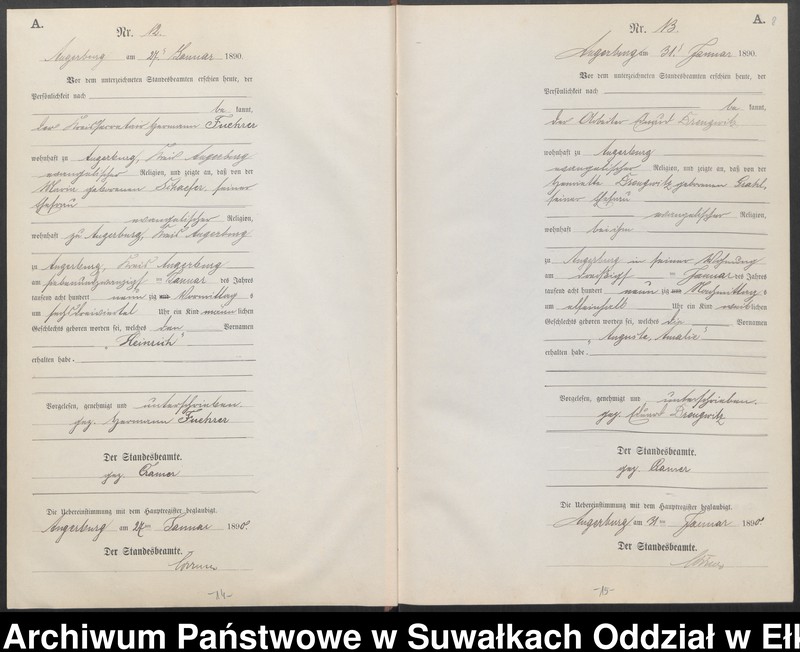 A.
Nr. 12.
Angerburg am 27. Januar 1890.
Vor dem unterzeichneten Standesbeamten erschien heute, der
Persönlichkeit nach
be kannt,
der Hermann Fuehrer
wohnhaft zu Angerburg, Kreis Angerburg
evangelischer Religion, und zeigte an, daß von der
Maria geborenen Schaefer, seiner
Ehefrau
evangelischer Religion,
wohnhaft zu Angerburg, Kreis Angerburg
zu Angerburg, Kreis Angerburg
am siebenundzwanzigst en Januar des Jahres
tausend acht hundert neun zig Vormittag s
um sechs dreiviertel Uhr ein Kind männ lichen
Geschlechts geboren worden sei, welches den Vornamen
„Heinrich“
erhalten habe.
Vorgelesen, genehmigt und unterschrieben.
gez. Hermann Fuehrer
Der Standesbeamte.
gez. Cramer
Die Uebereinstimmung mit dem Hauptregister beglaubigt.
Angerburg am 27ten Januar 1890.
Der Standesbeamte.
-14-
A.
Nr. 13.
Angerburg am 31. Januar 1890.
Vor dem unterzeichneten Standesbeamten erschien heute, der
Persönlichkeit nach
be kannt,
der Arbeiter Eduard Drengwitz
wohnhaft zu Angerburg
evangelischer Religion, und zeigte an, daß von der
Henriette Drengwitz geborenen Grabl,
seiner Ehefrau
evangelischer Religion,
wohnhaft bei ihm
zu Angerburg in seiner Wohnung
am dreißigst en Januar des Jahres
tausend acht hundert neun zig Nachmittag s
um elfeinhalb Uhr ein Kind weib lichen
Geschlechts geboren worden sei, welches die Vornamen
„Auguste, Amalie“
erhalten habe.
Vorgelesen, genehmigt und unterschrieben.
gez. Eduard Drengwitz
Der Standesbeamte.
gez. Cramer
Die Uebereinstimmung mit dem Hauptregister beglaubigt.
Angerburg am 31ten Januar 1890.
Der Standesbeamte.
-15-
Archiwum Państwowe w Suwałkach Oddział w Ełk